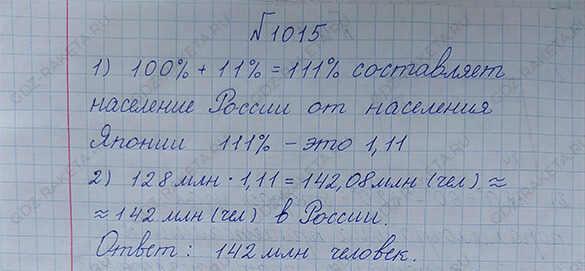 №1015
1) 100% + 11% = 111% составляет
население России от населения
Японии 111% – это 1,11
2) 128 млн · 1,11 = 142,08 млн (чел) ≈
≈ 142 млн (чел) в России.
Ответ: 142 млн человек.